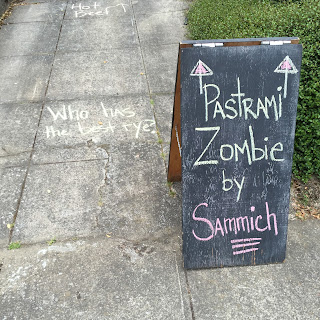 Hot Beer?
Who has
the best rye?
Pastrami
Zombie
by
Sammich